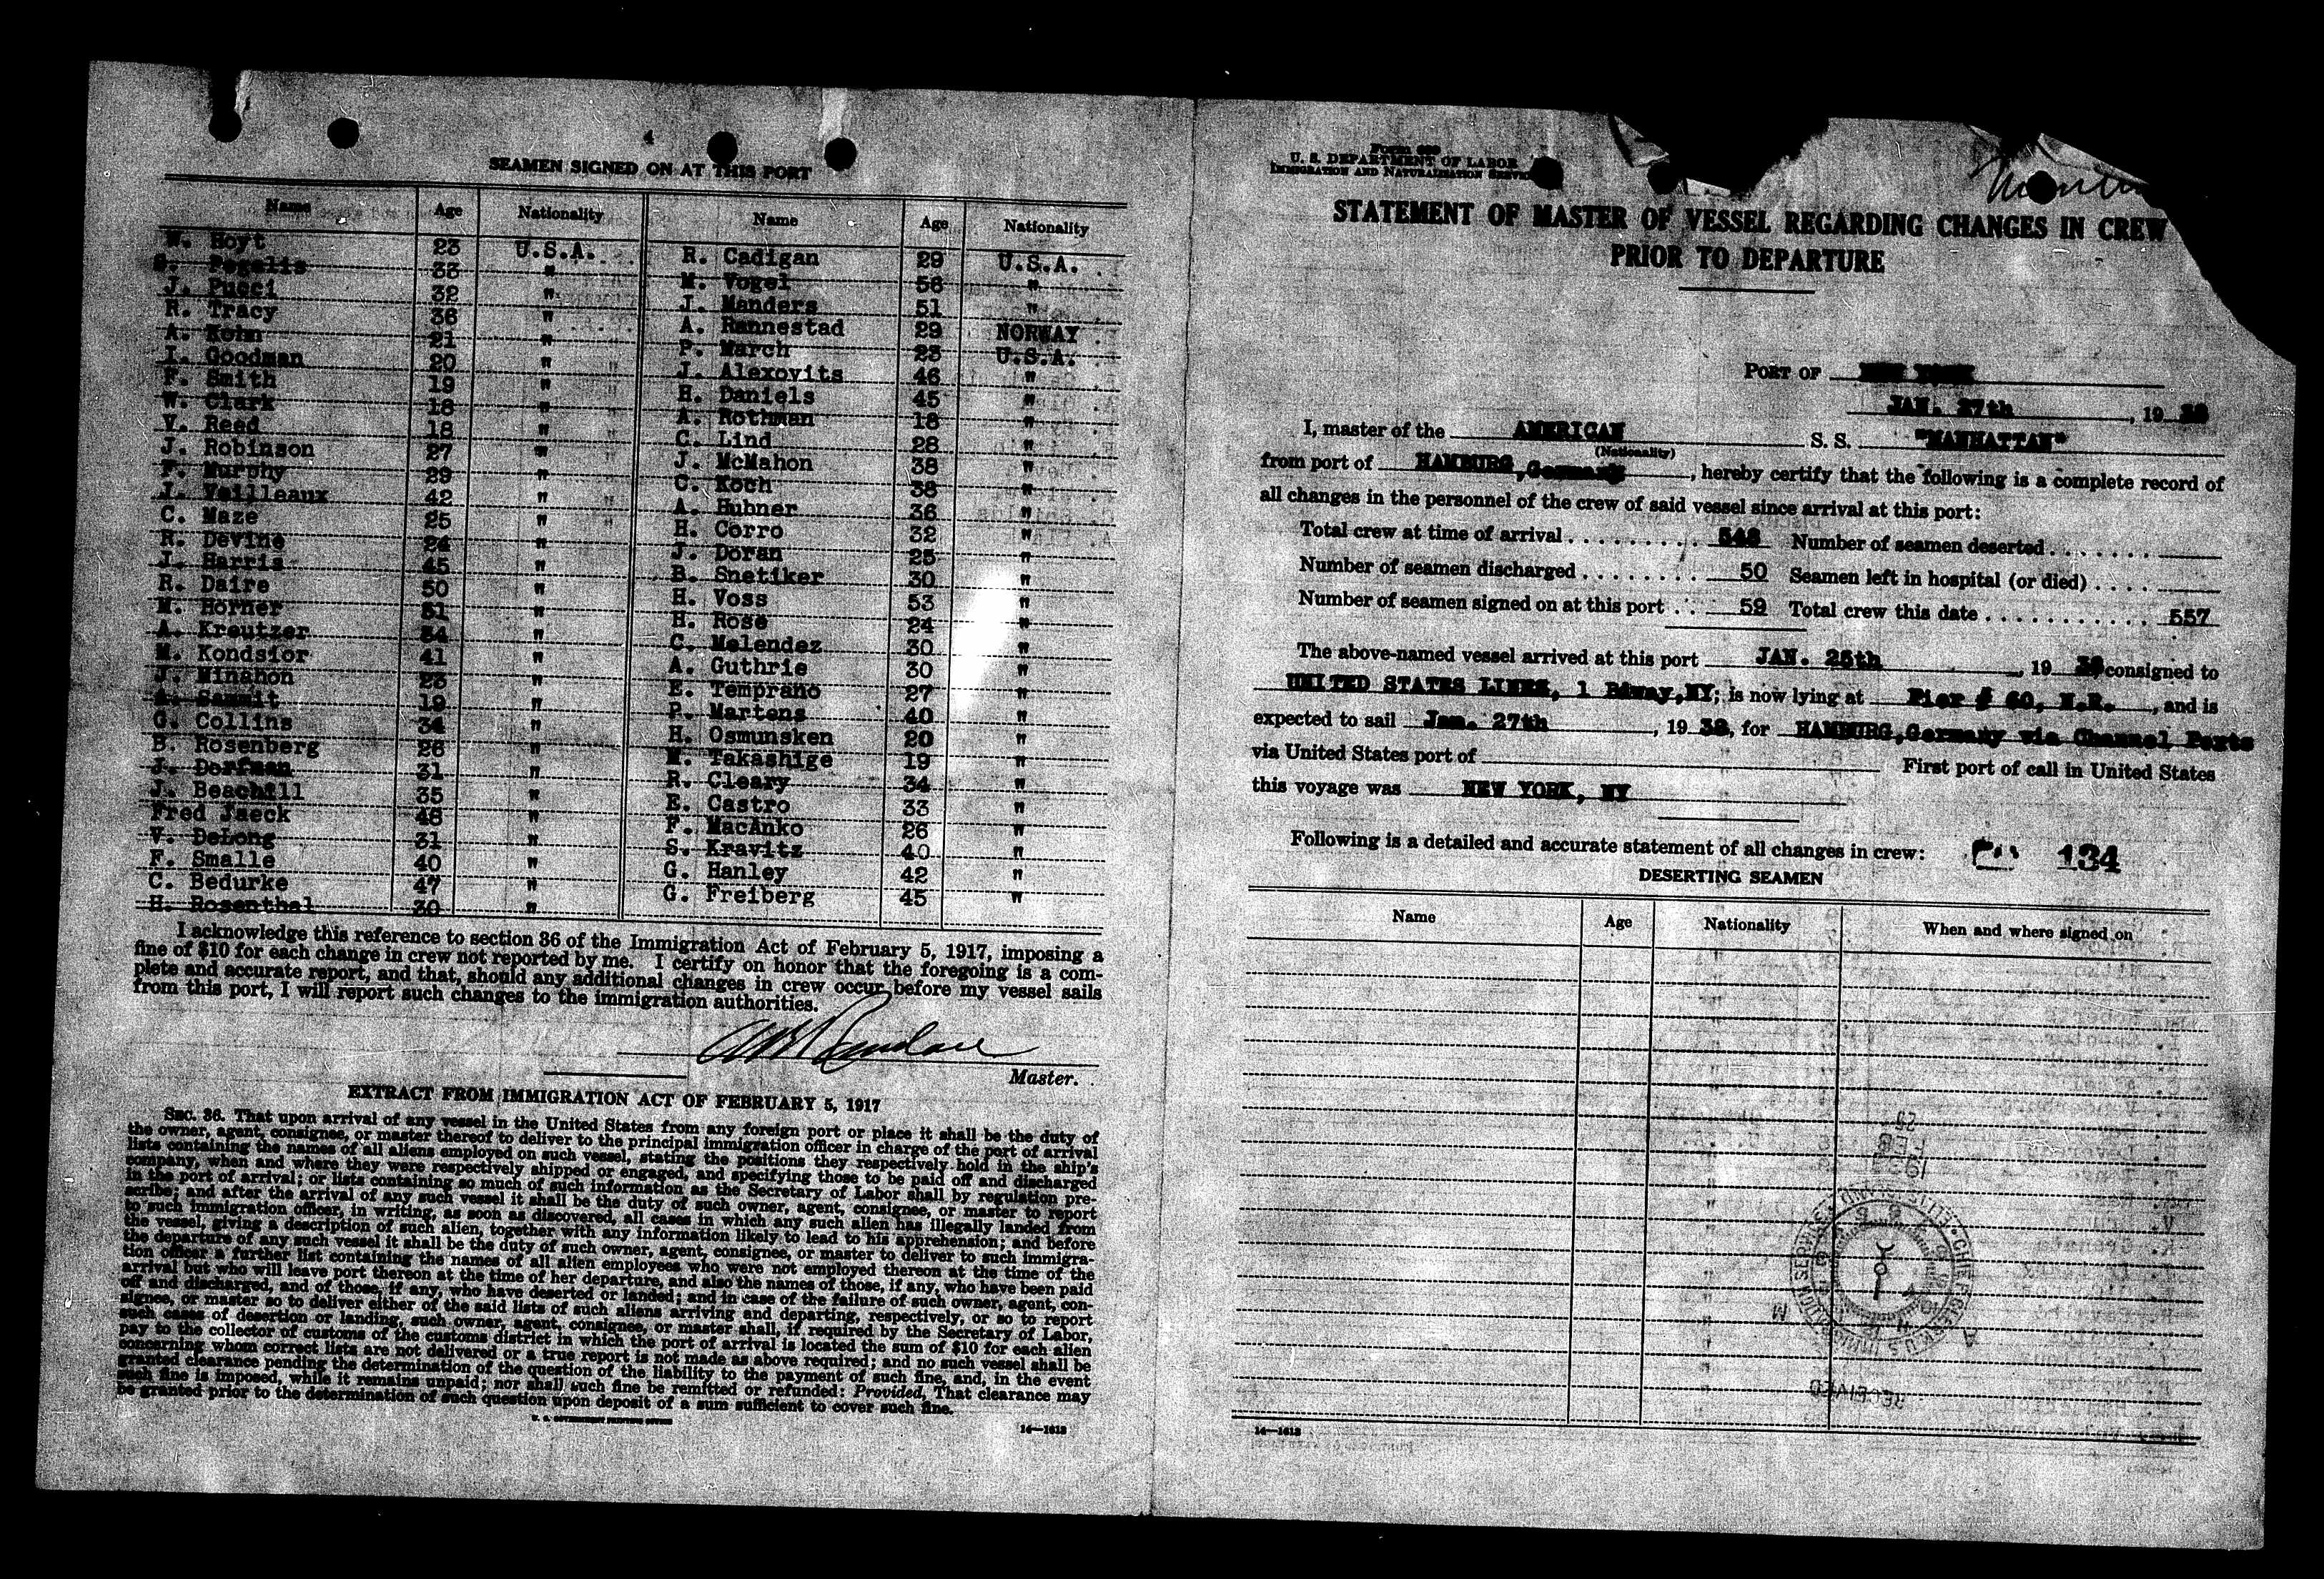 4
SEAMEN SIGNED ON AT THIS PORT
Name Age Nationality Name Age Nationality
W. Hoyt 23 U.S.A. R. Cadigan 29 U.S.A.
S. Pegelis 33 " M. Vogel 58 "
J. Pucci 32 " J. Manders 51 "
R. Tracy 36 " A. Rannestad 29 NORWAY
A. Kohn 21 " P. March 23 U.S.A.
I. Goodman 20 " J. Alexovits 46 "
F. Smith 19 " H. Daniels 45 "
W. Clark 18 " A. Rothman 18 "
V. Reed 18 " C. Lind 28 "
J. Robinson 27 " J. McMahon 38 "
F. Murphy 29 " C. Koch 38 "
J. Vailleaux 42 " A. Hubner 36 "
C. Maze 25 " H. Corro 32 "
R. Devine 24 " J. Doran 25 "
J. Harris 45 " B. Snetiker 30 "
R. Daire 50 " H. Voss 53 "
M. Horner 51 " H. Rose 24 "
A. Kreutzer 34 " C. Melendez 30 "
M. Kondsior 41 " A. Guthrie 30 "
J. Minahon 23 " E. Temprano 27 "
A. Sammit 19 " P. Martens 40 "
G. Collins 34 " H. Osmunsken 20 "
B. Rosenberg 26 " M. Takashige 19 "
J. Dorfman 31 " R. Cleary 34 "
J. Beachill 35 " E. Castro 33 "
Fred Jaeck 48 " F. MacAnko 26 "
V. DeLong 31 " S. Kravitz 40 "
F. Smalle 40 " G. Hanley 42 "
C. Bedurke 47 " G. Freiberg 45 "
H. Rosenthal 30 "
I acknowledge this reference to section 36 of the Immigration Act of February 5, 1917, imposing a
fine of $10 for each change in crew not reported by me. I certify on honor that the foregoing is a com-
plete and accurate report, and that, should any additional changes in crew occur before my vessel sails
from this port, I will report such changes to the immigration authorities.
Master.
EXTRACT FROM IMMIGRATION ACT OF FEBRUARY 5, 1917
SEC. 36. That upon arrival of any vessel in the United States from any foreign port or place it shall be the duty of
the owner, agent, consignee, or master thereof to deliver to the principal immigration officer in charge of the port of arrival
lists containing the names of all aliens employed on such vessel, stating the positions they respectively hold in the ship's
company, when and where they were respectively shipped or engaged, and specifying those to be paid off and discharged
in the port of arrival; or lists containing so much of such information as the Secretary of Labor shall by regulation pre-
scribe; and after the arrival of any such vessel it shall be the duty of such owner, agent, consignee, or master to report
to such immigration officer, in writing, as soon as discovered, all cases in which any such alien has illegally landed from
the vessel, giving a description of such alien, together with any information likely to lead to his apprehension; and before
the departure of any such vessel it shall be the duty of such owner, agent, consignee, or master to deliver to such immigra-
tion officer a further list containing the names of all alien employees who were not employed thereon at the time of the
arrival but who will leave port thereon at the time of her departure, and also the names of those, if any, who have been paid
off and discharged, and of those, if any, who have deserted or landed; and in case of the failure of such owner, agent, con-
signee, or master so to deliver either of the said lists of such aliens arriving and departing, respectively, or so to report
such cases of desertion or landing, such owner, agent, consignee, or master shall, if required by the Secretary of Labor,
pay to the collector of customs of the customs district in which the port of arrival is located the sum of $10 for each alien
concerning whom correct lists are not delivered or a true report is not made as above required; and no such vessel shall be
granted clearance pending the determination of the question of the liability to the payment of such fine, and, in the event
such fine is imposed, while it remains unpaid; nor shall such fine be remitted or refunded: Provided, That clearance may
be granted prior to the determination of such question upon deposit of a sum sufficient to cover such fine.
U. S. GOVERNMENT PRINTING OFFICE
14—1613
U. S. DEPARTMENT OF LABOR
IMMIGRATION AND NATURALIZATION SERVICE
STATEMENT OF MASTER OF VESSEL REGARDING CHANGES IN CREW
PRIOR TO DEPARTURE
PORT OF NEW YORK
JAN. 27th, 19 38
I, master of the AMERICAN S. S. "MANHATTAN"
(Nationality)
from port of HAMBURG, Germany, hereby certify that the following is a complete record of
all changes in the personnel of the crew of said vessel since arrival at this port:
Total crew at time of arrival 548 Number of seamen deserted
Number of seamen discharged 50 Seamen left in hospital (or died)
Number of seamen signed on at this port 59 Total crew this date 557
The above-named vessel arrived at this port JAN. 25th, 19 38 consigned to
UNITED STATES LINES, 1 Bdway, NY; is now lying at Pier # 60, N.R., and is
expected to sail Jan. 27th, 19 38, for HAMBURG, Germany via Channel Ports
via United States port of First port of call in United States
this voyage was NEW YORK, NY
Following is a detailed and accurate statement of all changes in crew: 134
DESERTING SEAMEN
Name Age Nationality When and where signed on
14—1613